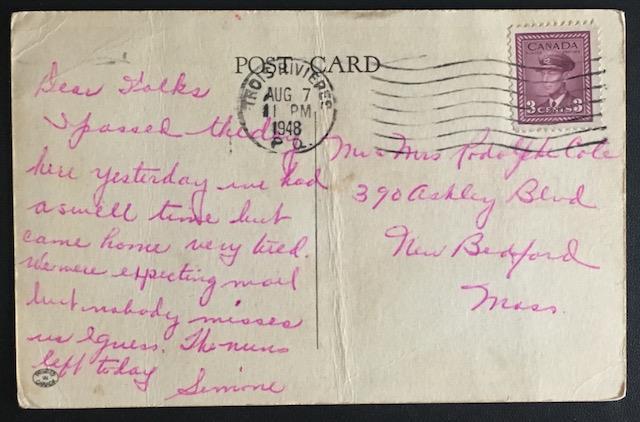 POST CARD
TROIS RIVIERES
AUG 7
11 PM
1948
P.Q.
CANADA
3 CENTS 3
Dear Folks
I passed the day
here yesterday we had
a swell time but
came home very tired.
We were expecting mail
but nobody misses
us I guess. The nuns
left today
Simone
Mr & Mrs Rodolphe Cole
390 Ashley Blvd
New Bedford
Mass.